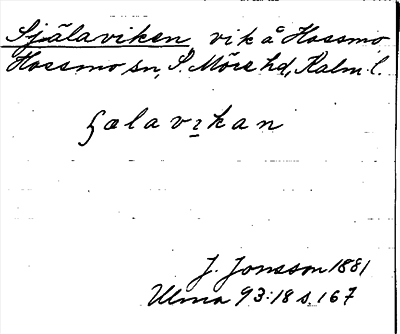 Själaviken, vik å Hossmo
Hossmo sn, S. Möre hd, Kalm. l.
ʂælavıkan
J. Jonsson 1881
Ulma 93:18 s. 167